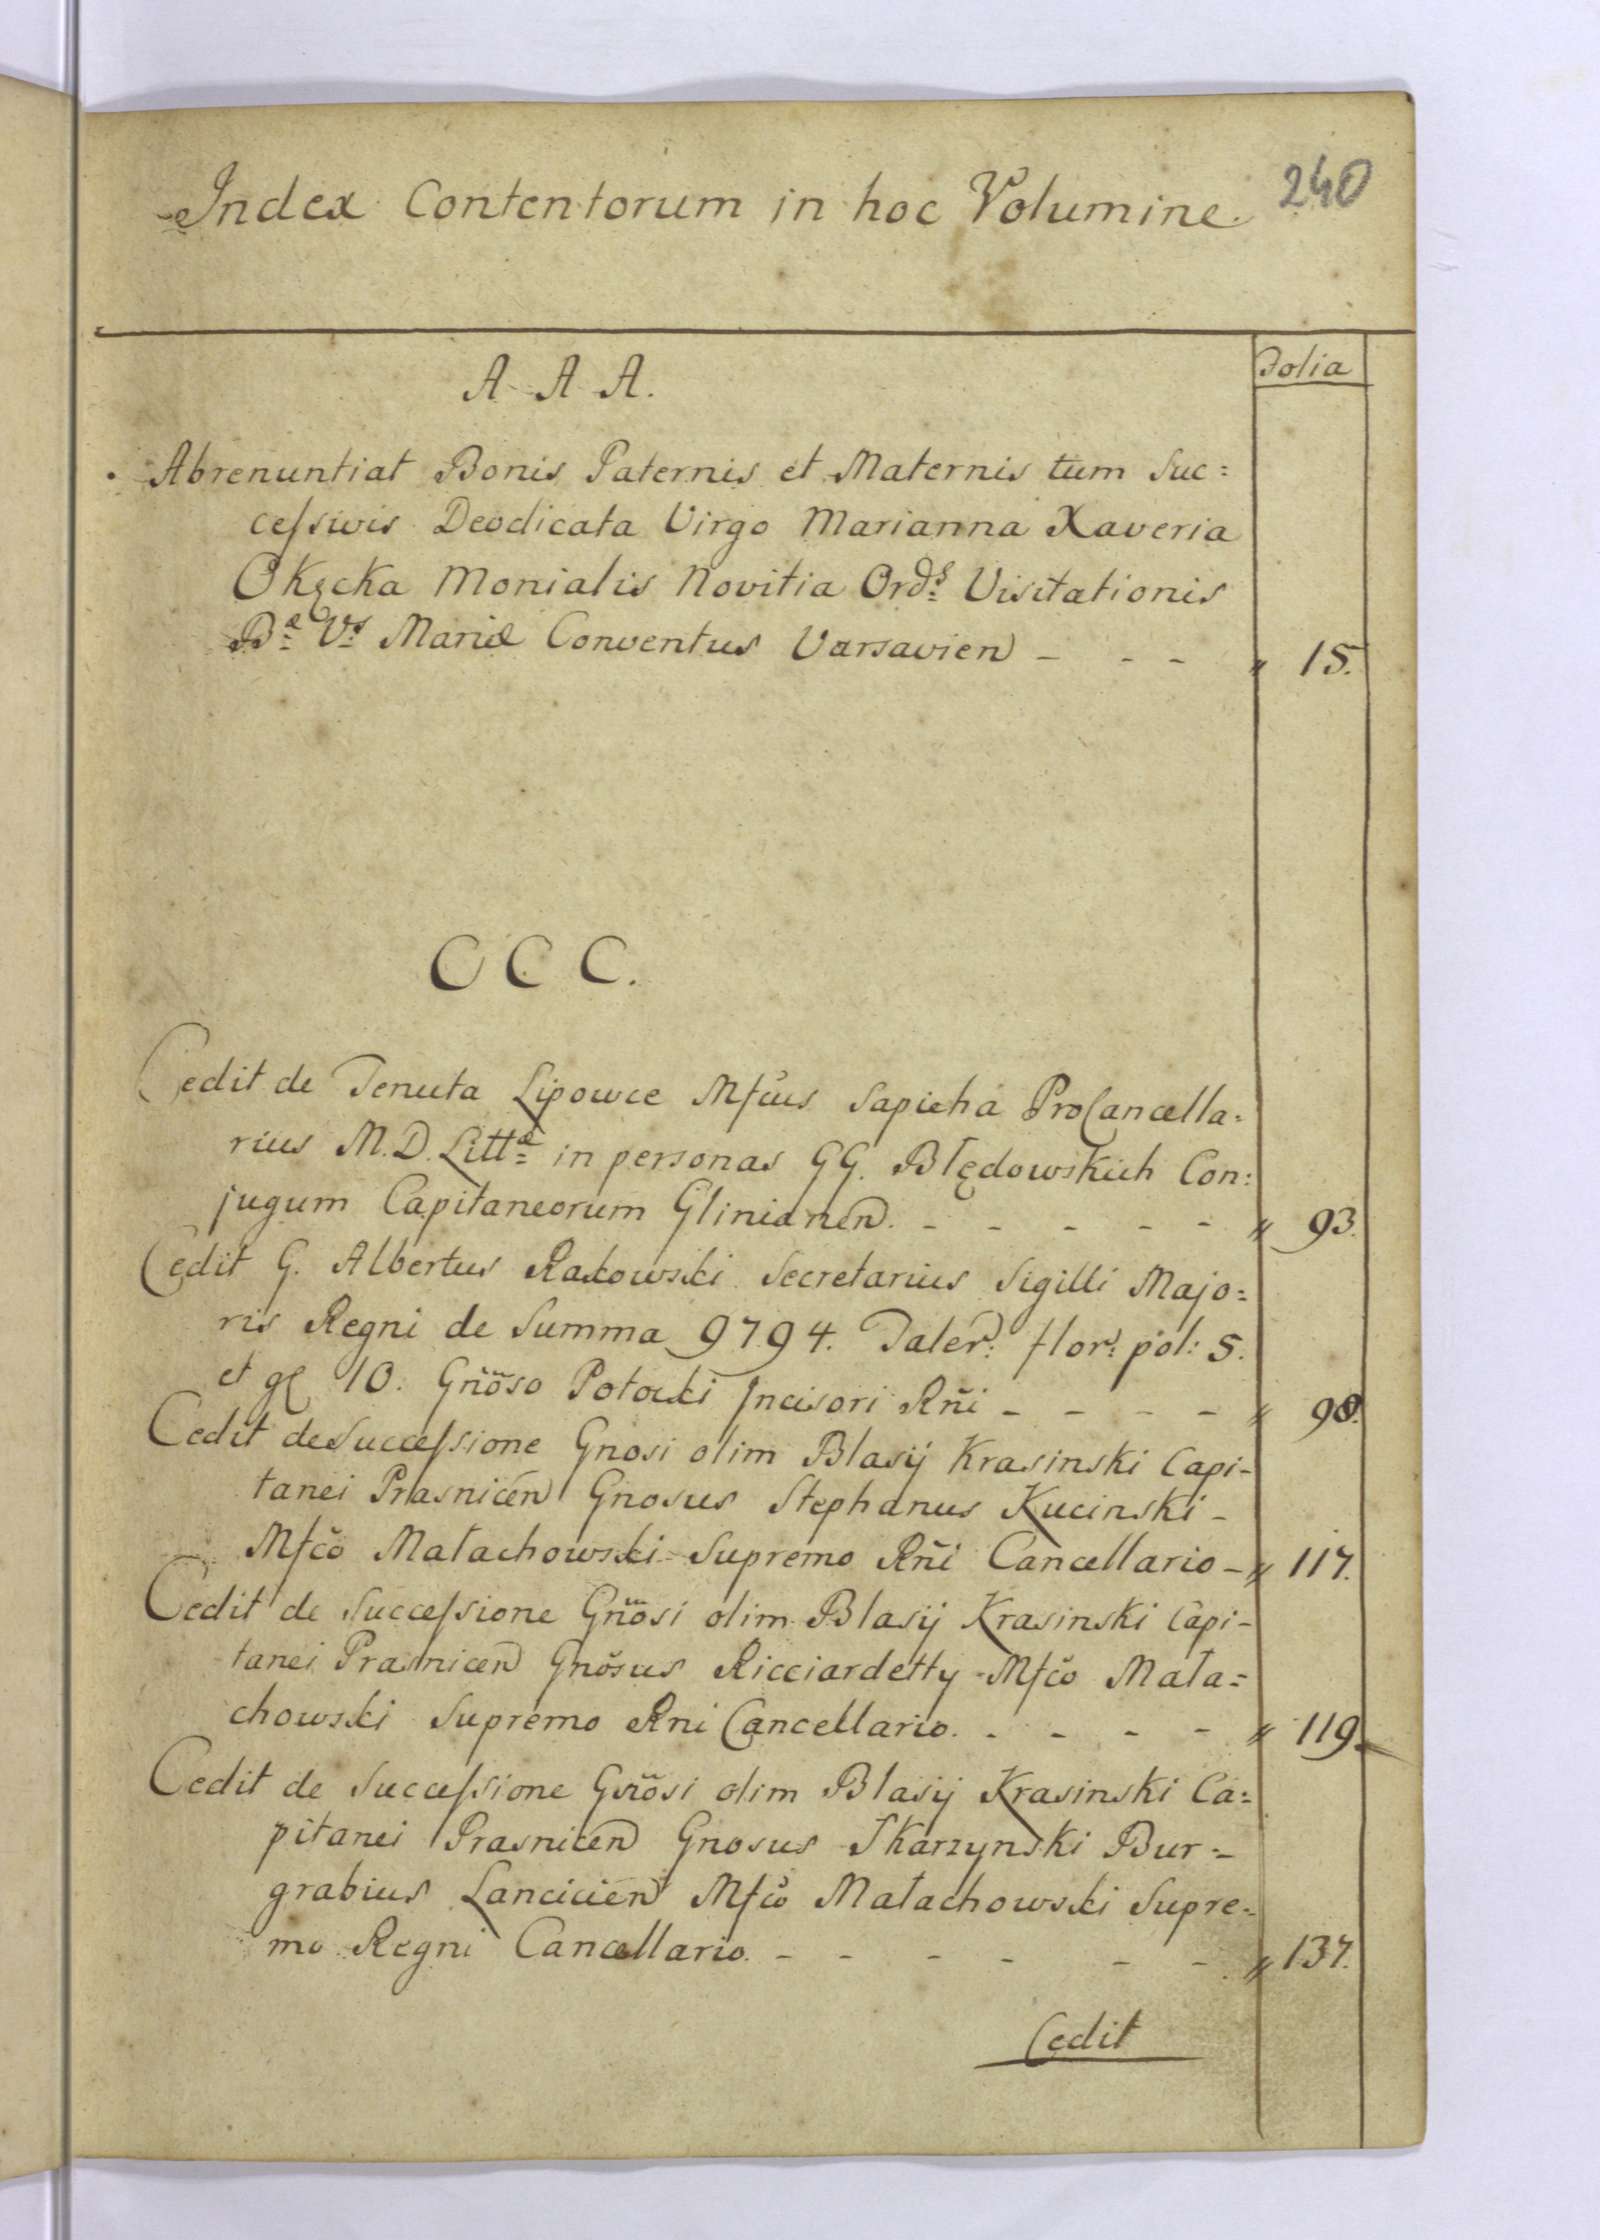 240
Index Contentorum in hoc Volumine.
Folia
A A A.
Abrenuntiat Bonis Paternis et Maternis tum Suc=
ceſsivis Deodicata Virgo Marianna Xaveria
Okęcka Monialis Novitia Ord:s Visitationis
B:æ V:s Mariæ Conventus Varsavien - - - " 15.
C C C.
Cedit de Tenuta Lipowce Mſcus Sapieha ProCancella=
rius M. D. Litt:æ in personas GG. Błędowskich Con=
jugum Capitaneorum Glinianen. - - - - - " 93.
Cedit G. Albertus Rakowski Secretarius Sigilli Majo=
ris Regni de Summa 9794. Taler: flor: pol: 5.
et gſ 10. Gnõso Potocki Incisori Rñi - - - - " 98.
Cedit de Succeſsione Gnosi olim Blasij Krasinski Capi-
tanei Prasnicen Gnosus Stephanus Kucinski -
Mſcõ Małachowski Supremo Rñi Cancellario - " 117.
Cedit de Succeſsione Gnõsi olim Blasij Krasinski Capi-
tanei Prasnicen Gnõsus Ricciardetty Mſcõ Mała=
chowski Supremo Rni Cancellario. - - - - " 119.
Cedit de Succeſsione Gnõsi olim Blasij Krasinski Ca=
pitanei Prasnicen Gnosus Skarzynski Bur=
grabius Lancicien Mſcõ Małachowski Supre=
mo Regni Cancellario. - - - - - - " 137.
Cedit